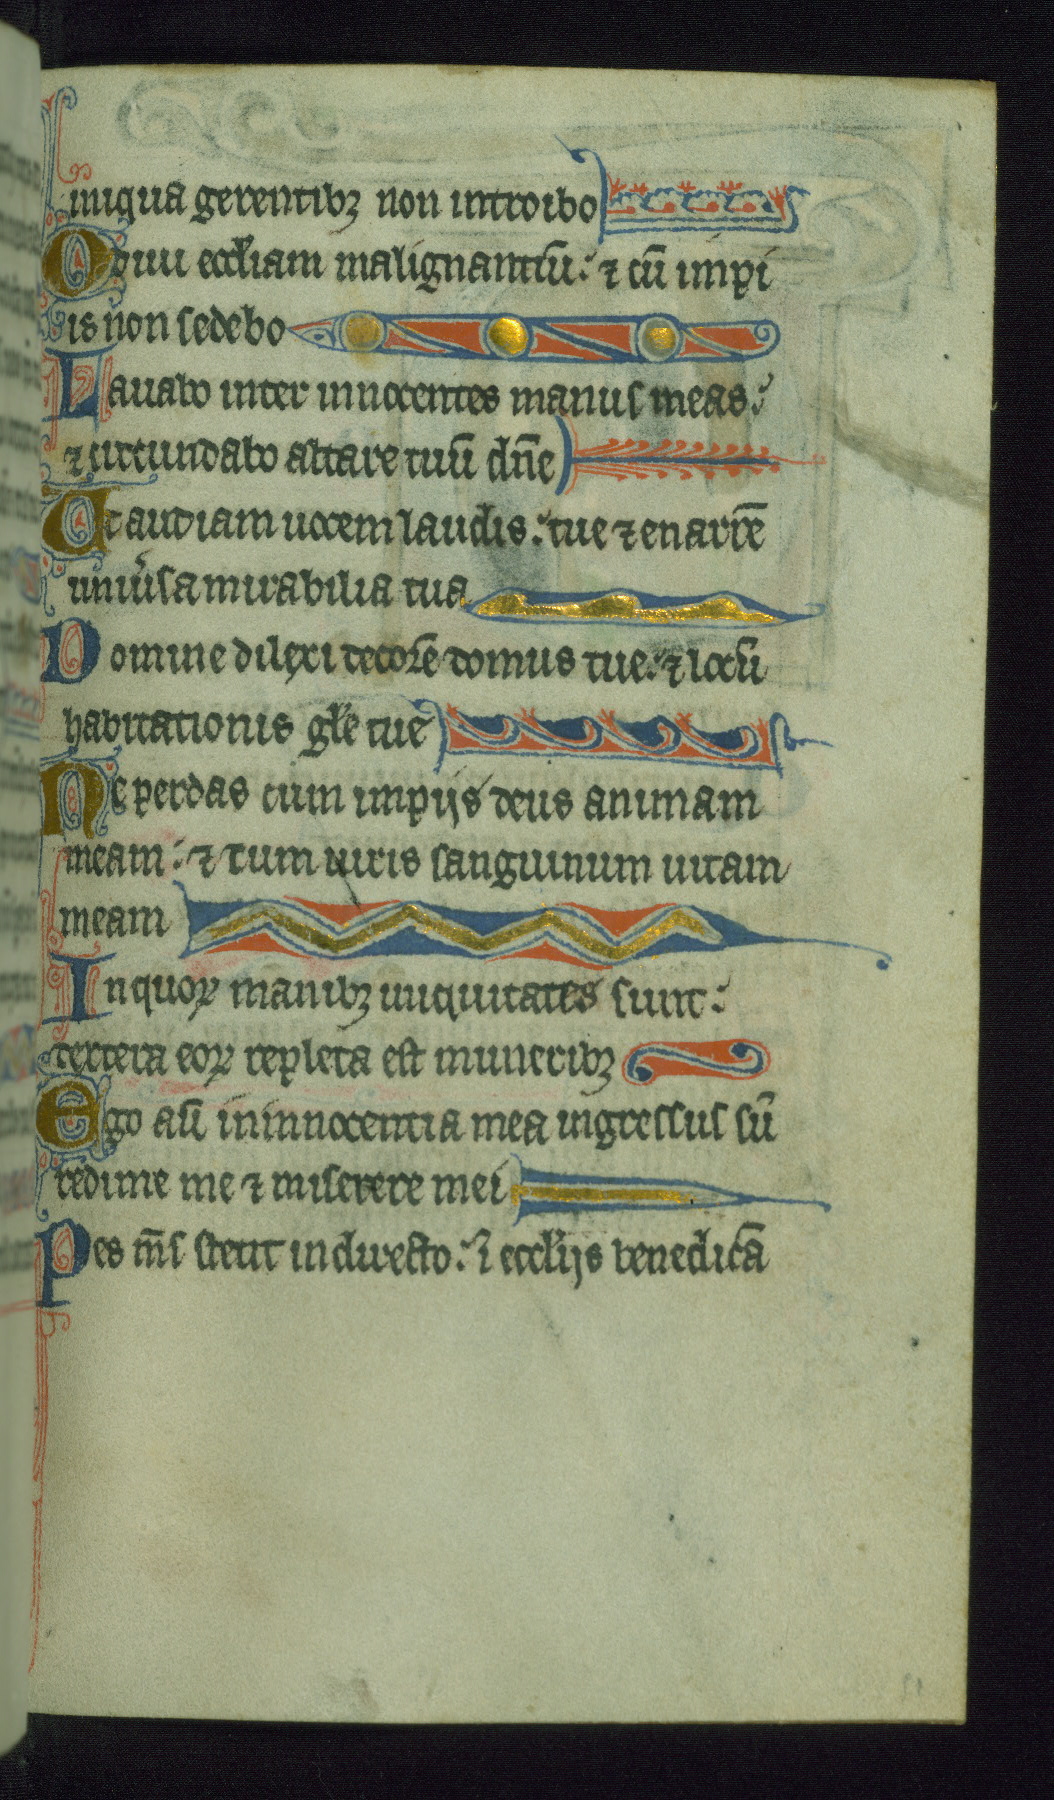 iniqua gerentibꝫ non introibo
Odiui eccl̄iam malignantiū: ⁊ cū impi
is non sedebo
Lauabo inter innocentes manus meas:
⁊ circundabo altare tuū dn̄e
Ut audiam uocem laudis: tue ⁊ enarrē
uniu̓sa mirabilia tua
Domine dilexi decorē domus tue: ⁊ locū
habitationis gl̄e tue
Ne ꝑerdas cum impijs deus animam
meam: ⁊ cum uiris sanguinum uitam
meam
In quoꝝ manibꝫ iniquitates sunt:
dextera eoꝝ repleta est muneribꝫ
Ego aū in innocentia mea ingressus sū
redime me ⁊ miserere mei
Pes m̄s stetit in directo: ī eccl̄ijs benedicā